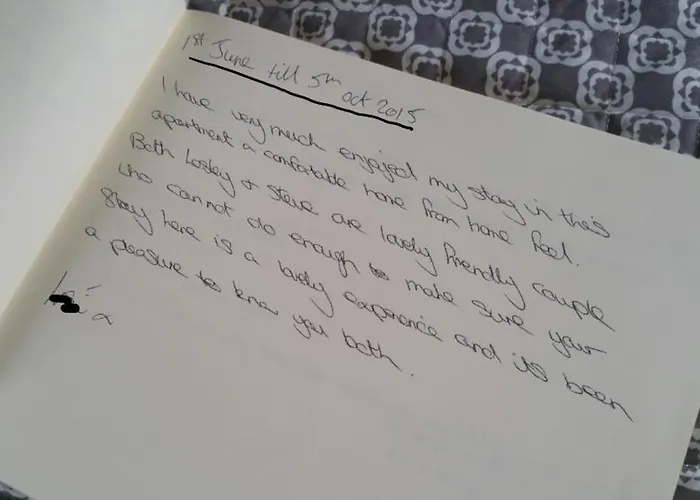 1st June till 5th oct 2015
I have very much enjoyed my stay in this
apartment a comfortable home from home feel.
Both Lesley & Steve are lovely friendly couple
who cannot do enough to make sure your
stay here is a lovely experience and its been
a pleasure to know you both.
x